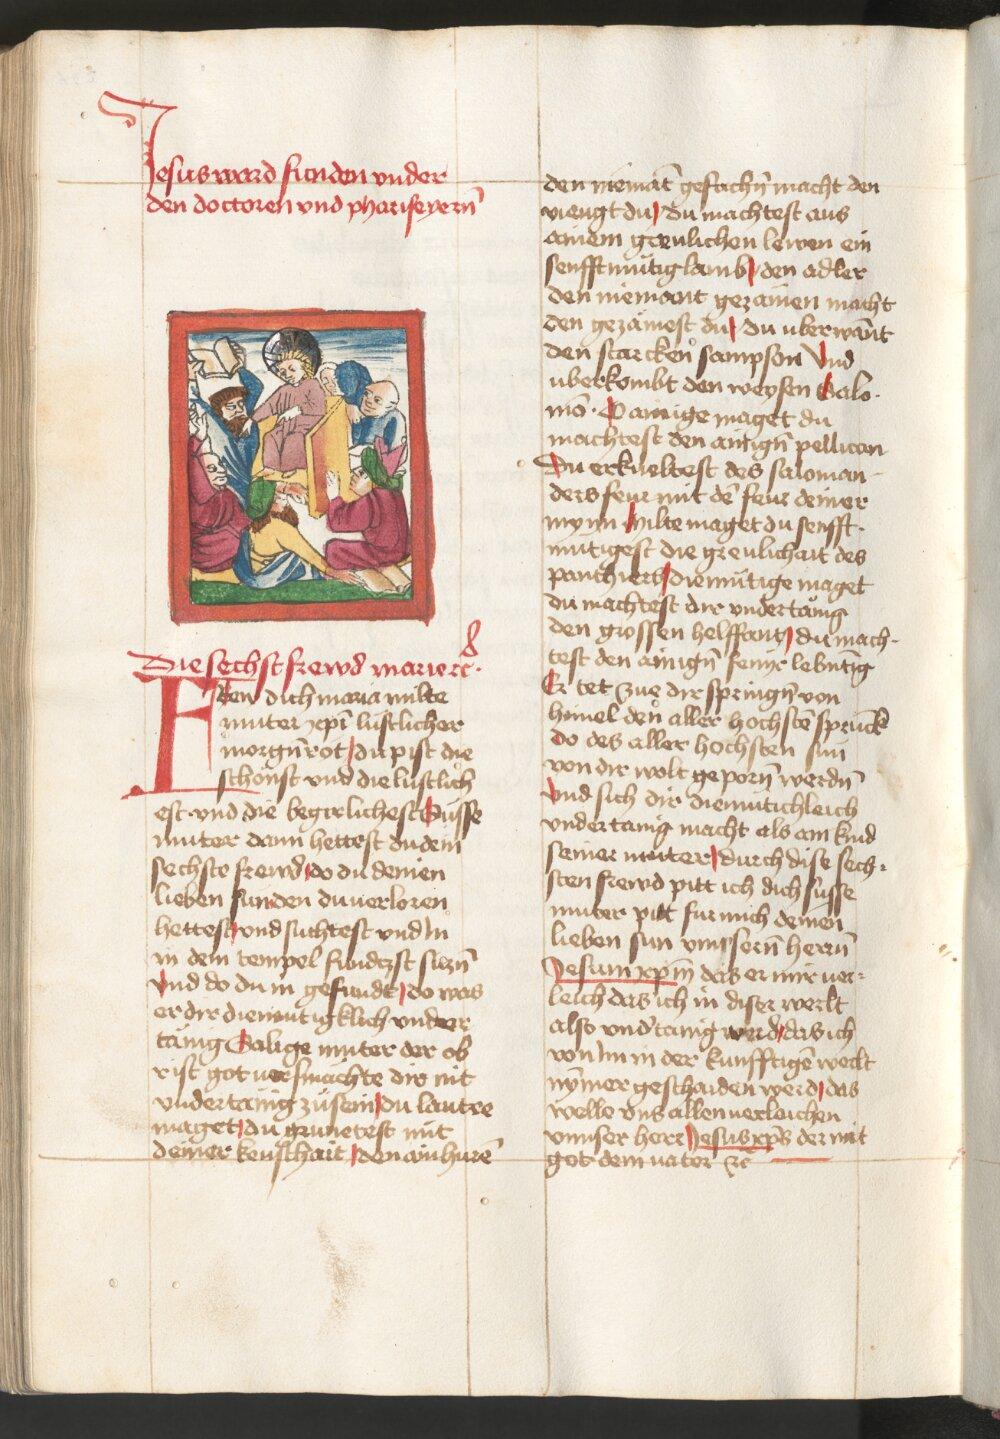 Jesus ward funden vnder
den doctoren vnd phariseyern̄
Die sechst frewd marie
Frew dich maria milte
muter xp̄i lustlicher
morgn̄rot du pist die
schönst vnd die lustlich
est vnd die begirlichest Süsse
muter dann hettest du dein
sechste frewd do du deinen
lieben sun den du verloren
hettest vnd suchtest vnd In
in dem tempel fundest siczn̄
Vnd do du in gefundt do was
er dir diemutigklich vnder
tänig Salige muter der ob
rist got versmächte dir nit
vndertänig zu sein du lautre
maget du grunetest mit
deiner keuschait den ainhurē
den niemāt gefachn̄ macht den
viengt du Du machtest aus
ainem greulichen lewen ein
senfftmütig lamb den adler
den niemant gezämen macht
den gezämest du du uberwāt
den starcken sampson Vnd
uberkombt den weysen Salo
mō O ainige maget du
machtest den ainign̄ pellican
Du erkueltest des saloman
ders feur mit dē feur deiner
mynn Milte maget du senfft
mütigest die greulichait des
panthiers diemütige maget
du machtest dir vndertänig
den grossen helffant du mach
test den ainign̄ fenix lebn̄tig
Er tet zue dir springn̄ von
himel den aller hochstē sprunck
do des aller hochsten sun
von dir wolt geporn̄ werdn̄
Vnd sich dir diemütichleich
vndertanig macht als ain kind
seiner muter durch dise sech
sten frewd pitt ich dich süsse
muter pitt fur mich deinen
lieben sun vnnsern̄ herrn̄
Jesum xp̄m das er mir ver
leich das ich in diser werlt
also vnd̄tanig werd das ich
von Im in der kunfftigē werlt
nȳmer geschaiden werd das
welle vns allen verleichen
vnnser herr Jesus xp̄s der mit
got dem vater ꝛc̄